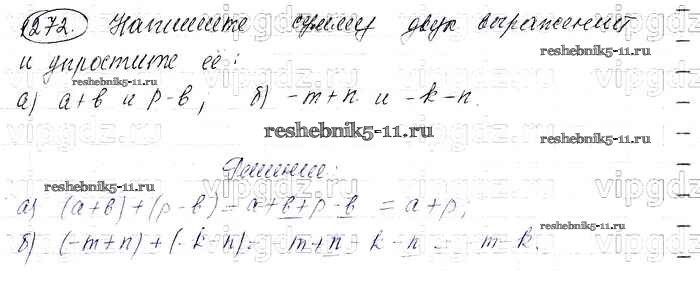 1272. Напишите сумму двух выражений
и упростите её:
reshebnik5-11.ru reshebnik5-11.ru
а) a+b и p-b, б) -m+n и -k-n.
reshebnik5-11.ru reshebnik5-11.ru
vipgdz.ru vipgdz.ru
Решение:
reshebnik5-11.ru
а) (a+b)+(p-b)=a+b+p-b = a+p;
reshebnik5-11.ru
б) (-m+n)+(-k-n)= m+n - k-n = m-k.
vipgdz.ru vipgdz.ru